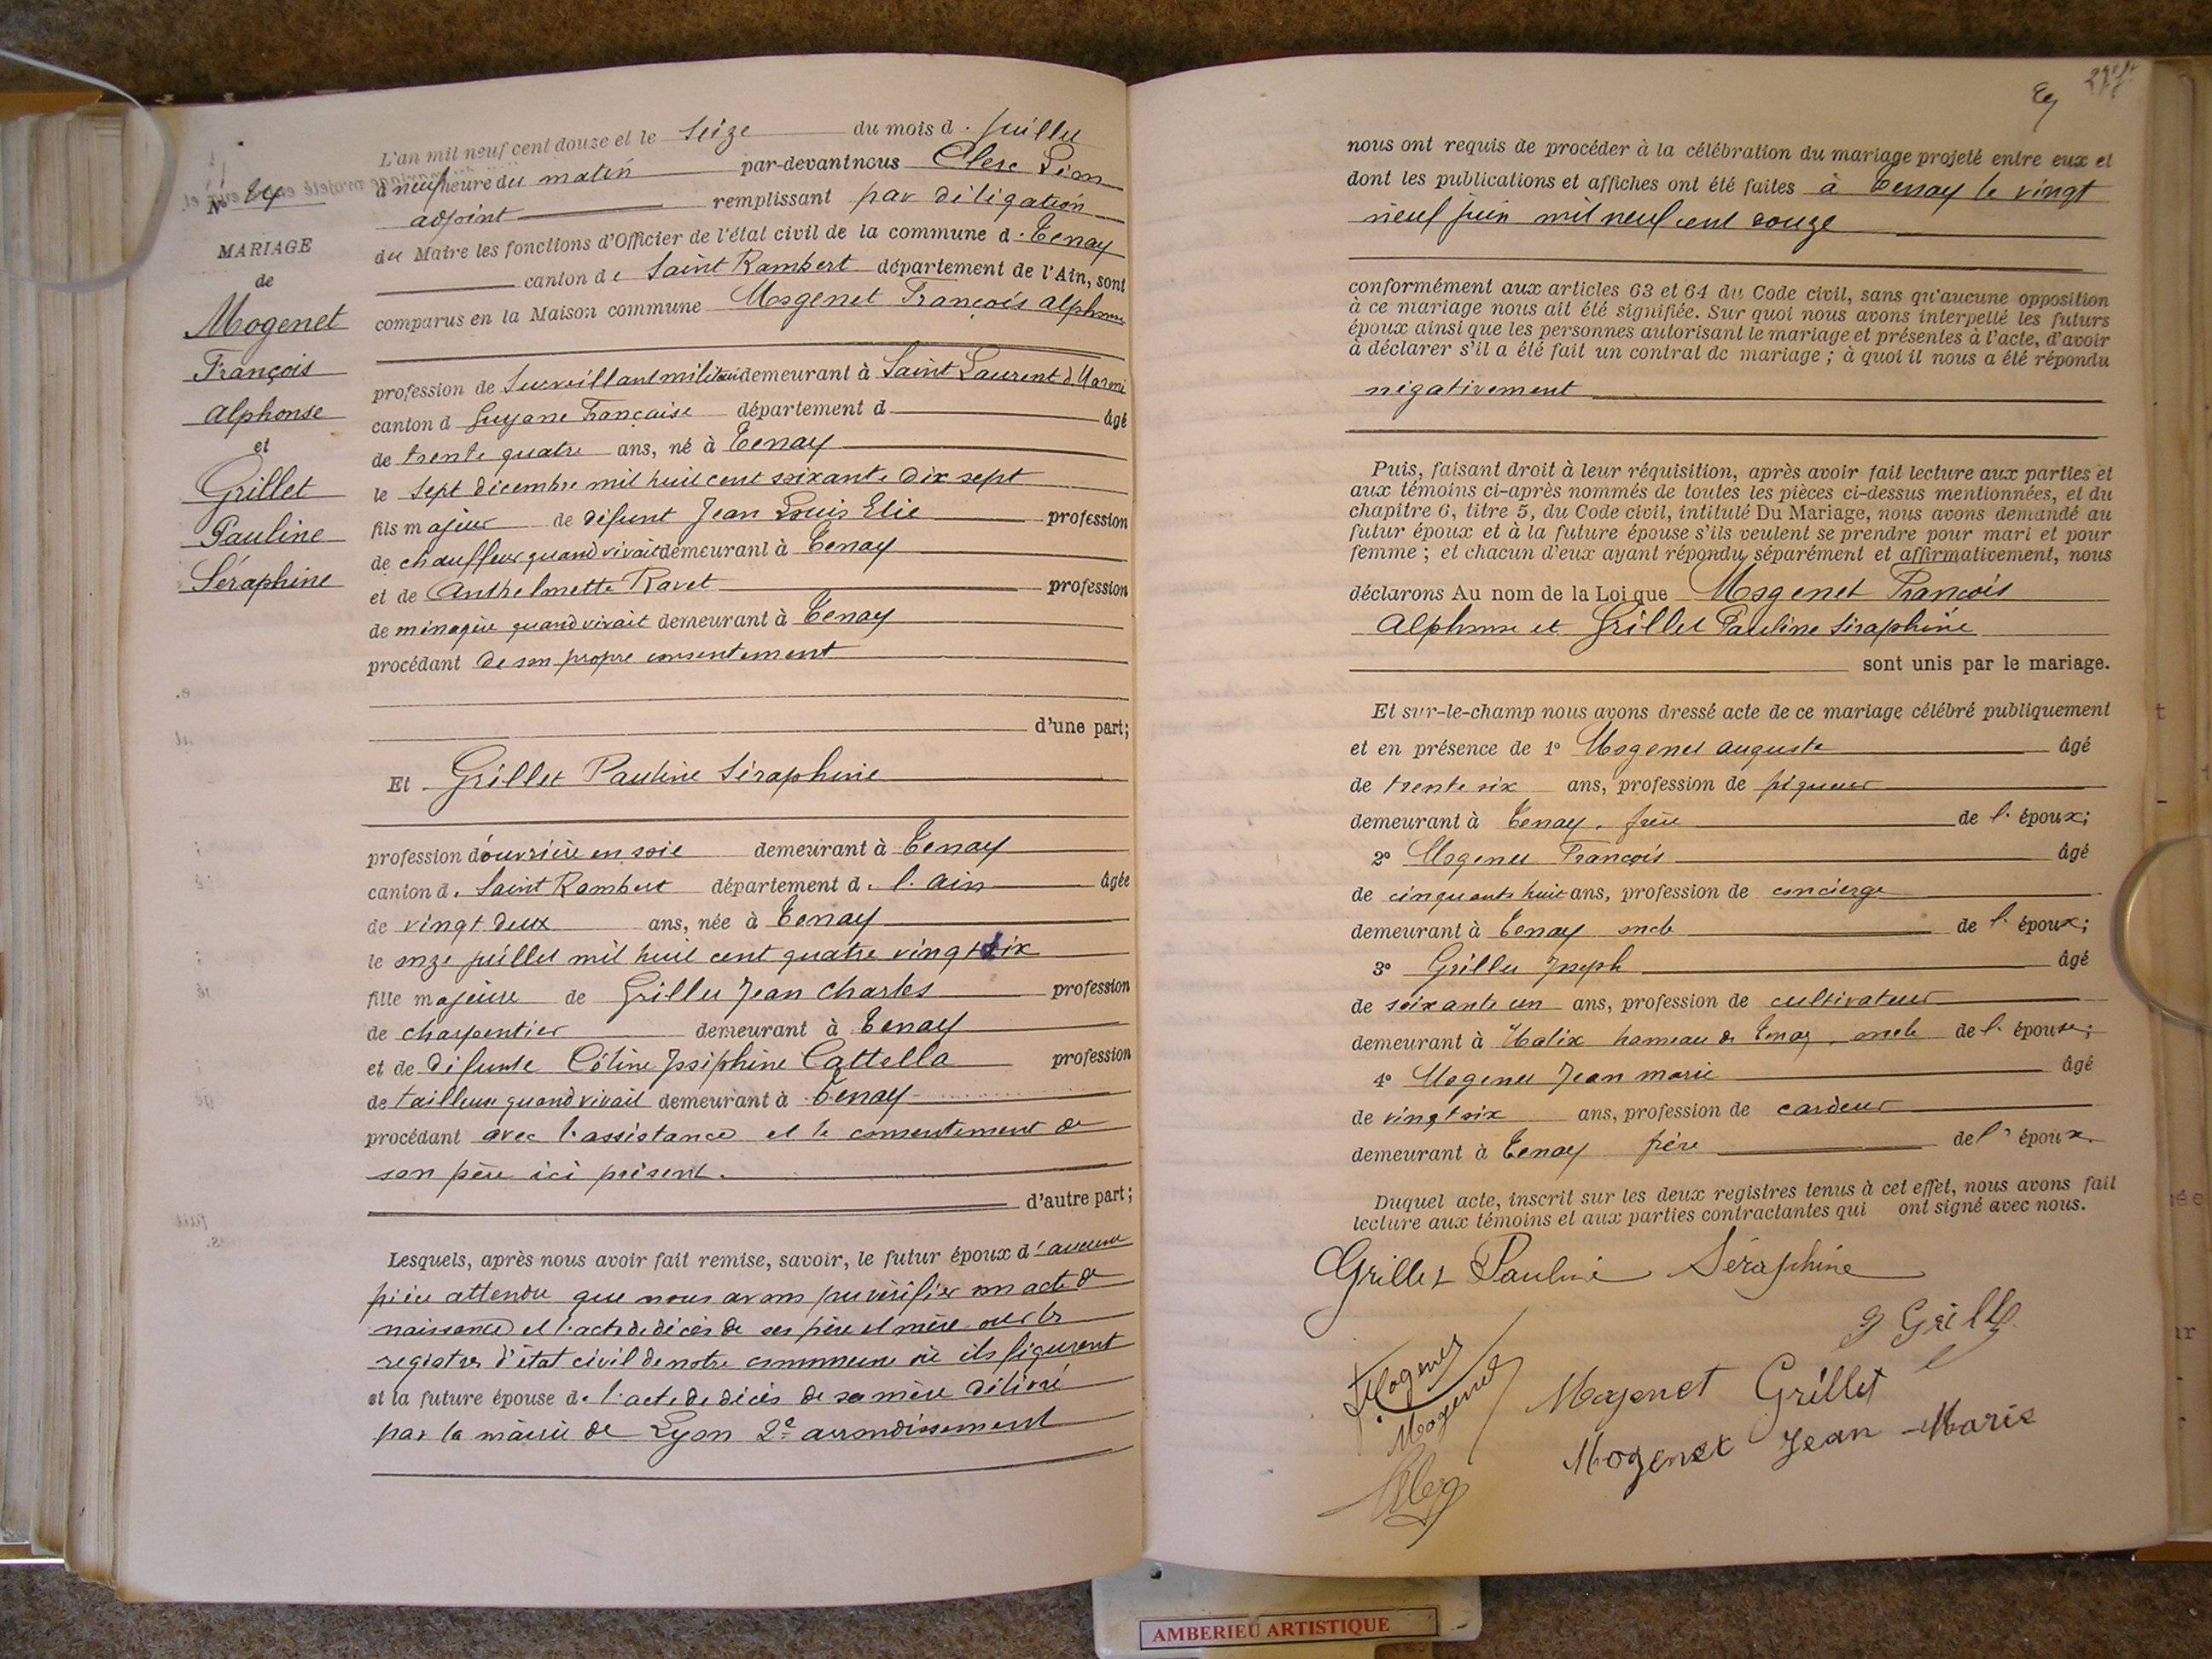 L'an mil neuf cent douze et le seize du mois d. juillet
à neuf heure du matin par-devant nous Clerc Léon
adjoint remplissant par déligation
du Maire les fonctions d'Officier de l'état civil de la commune d. Tenay
canton de Saint Rambert département de l'Ain, sont
comparus en la Maison commune Mogenet François Alphonse
profession de Surveillant militaire demeurant à Saint Laurent d. Maroni
canton d Guyane Française département d âgé
de trente quatre ans, né à Tenay
le sept décembre mil huit cent soixante dix sept
fils majeur de défunt Jean Louis Elie profession
de chauffeur quand vivait demeurant à Tenay
et de Anthelmette Ravet profession
de ménagère quand vivait demeurant à Tenay
procédant de son propre consentement
d'une part;
Et Grillet Pauline Séraphine
profession d'ouvrière en soie demeurant à Tenay
canton d. Saint Rambert département d. l. ain âgée
de vingt deux ans, née à Tenay
le onze juillet mil huit cent quatre vingt dix
fille majeure de Grillet Jean Charles profession
de charpentier demeurant à Tenay
et de défunte Céline Joséphine Cattella profession
de tailleuse quand vivait demeurant à Tenay
procédant avec l'assistance et le consentement de
son père ici présent.
d'autre part;
Lesquels, après nous avoir fait remise, savoir, le futur époux d'aucune
pièce attendu que nous avons pu vérifier son acte de
naissance et l'acte de décès de ses père et mère sur les
registres d'état civil de notre commune où ils figurent
et la future épouse de l'acte de décès de sa mère délivré
par la mairie de Lyon 2e arrondissement
N° 24
MARIAGE
de
Mogenet
François
Alphonse
et
Grillet
Pauline
Séraphine
nous ont requis de procéder à la célébration du mariage projeté entre eux et
dont les publications et affiches ont été faites à Tenay le vingt
neuf juin mil neuf cent douze
conformément aux articles 63 et 64 du Code civil, sans qu'aucune opposition
à ce mariage nous ait été signifiée. Sur quoi nous avons interpellé les futurs
époux ainsi que les personnes autorisant le mariage et présentes à l'acte, d'avoir
à déclarer s'il a été fait un contrat de mariage ; à quoi il nous a été répondu
négativement
Puis, faisant droit à leur réquisition, après avoir fait lecture aux parties et
aux témoins ci-après nommés de toutes les pièces ci-dessus mentionnées, et du
chapitre 6, titre 5, du Code civil, intitulé Du Mariage, nous avons demandé au
futur époux et à la future épouse s'ils veulent se prendre pour mari et pour
femme ; et chacun d'eux ayant répondu séparément et affirmativement, nous
déclarons Au nom de la Loi que Mogenet François
Alphonse et Grillet Pauline Séraphine
sont unis par le mariage.
Et sur-le-champ nous avons dressé acte de ce mariage célébré publiquement
et en présence de 1° Mogenet Auguste âgé
de trente six ans, profession de piqueur
demeurant à Tenay, frère de l. époux;
2° Mogenet François âgé
de cinquante huit ans, profession de concierge
demeurant à Tenay oncle de l. époux;
3° Grillet Joseph âgé
de soixante un ans, profession de cultivateur
demeurant à Malix hameau de Tenay, oncle de l. épouse;
4° Mogenet Jean Marie âgé
de vingt six ans, profession de cardeur
demeurant à Tenay frère de l' époux.
Duquel acte, inscrit sur les deux registres tenus à cet effet, nous avons fait
lecture aux témoins et aux parties contractantes qui ont signé avec nous.
Grillet Pauline Séraphine
Mogenet
Mogenet
Mogenet Grillet
Mogenet Jean-Marie
AMBERIEU ARTISTIQUE